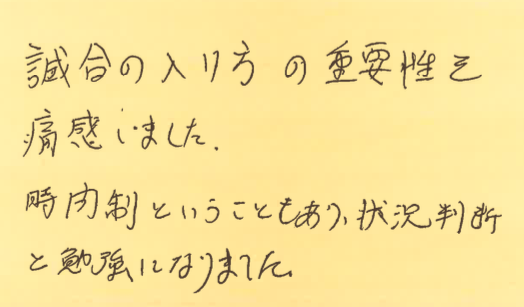 試合の入り方の重要性を
痛感いました.
時内制ということもあり、状況判断
と勉強になりました。